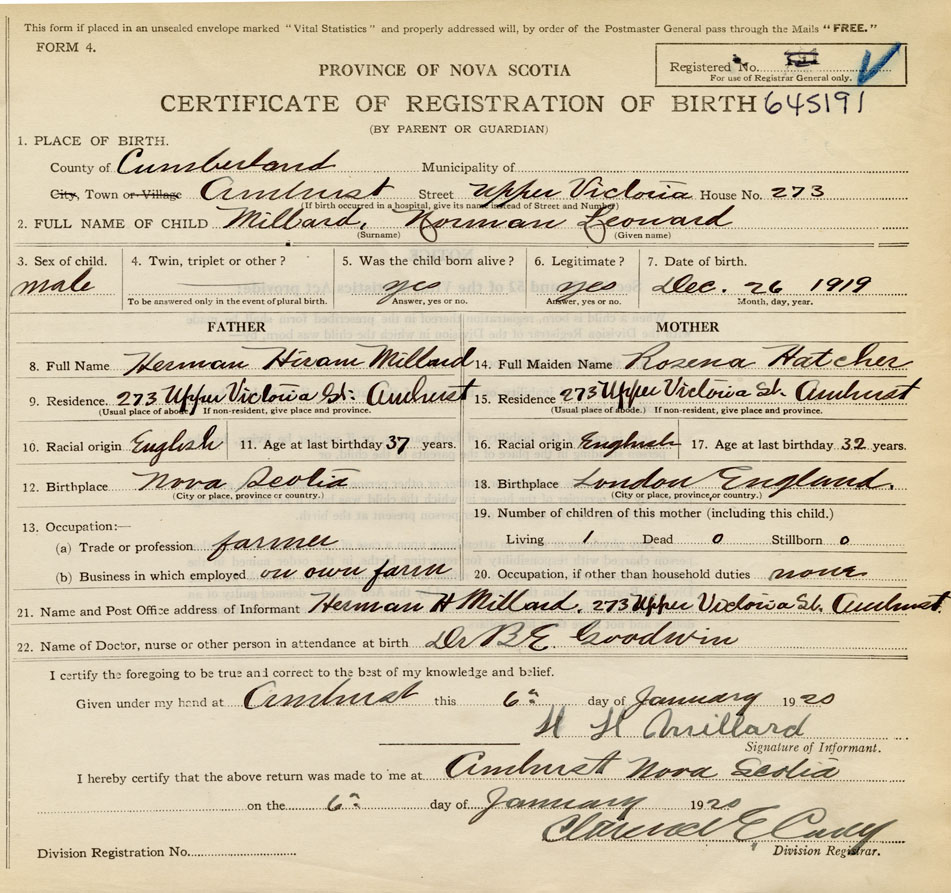 This form if placed in an unsealed envelope marked "Vital Statistics" and properly addressed will, by order of the Postmaster General pass through the Mails "FREE."
FORM 4.
Registered No.
For use of Registrar General only.
PROVINCE OF NOVA SCOTIA
CERTIFICATE OF REGISTRATION OF BIRTH 645191
(BY PARENT OR GUARDIAN)
1. PLACE OF BIRTH.
County of Cumberland Municipality of
City, Town or Village Amherst Street Upper Victoria House No. 273
(If birth occurred in a hospital, give its name instead of Street and Number)
2. FULL NAME OF CHILD Millard, Norman Leonard
(Surname) (Given name)
3. Sex of child. 4. Twin, triplet or other? 5. Was the child born alive? 6. Legitimate? 7. Date of birth.
male yes yes Dec. 26 1919
To be answered only in the event of plural birth. Answer, yes or no. Answer, yes or no. Month, day, year.
FATHER MOTHER
8. Full Name Herman Hiram Millard 14. Full Maiden Name Rosena Hatcher
9. Residence. 273 Upper Victoria St. Amherst 15. Residence 273 Upper Victoria St. Amherst
(Usual place of abode.) If non-resident, give place and province. (Usual place of abode.) If non-resident, give place and province.
10. Racial origin English 11. Age at last birthday 37 years. 16. Racial origin English 17. Age at last birthday 32 years.
12. Birthplace Nova Scotia 18. Birthplace London England.
(City or place, province or country.) (City or place, province, or country.)
13. Occupation:— 19. Number of children of this mother (including this child.)
(a) Trade or profession farmer Living 1 Dead 0 Stillborn 0
(b) Business in which employed on own farm 20. Occupation, if other than household duties none
21. Name and Post Office address of Informant Herman H Millard. 273 Upper Victoria St. Amherst.
22. Name of Doctor, nurse or other person in attendance at birth Dr B E Goodwin
I certify the foregoing to be true and correct to the best of my knowledge and belief.
Given under my hand at Amherst this 6th day of January 1920
H H Millard
Signature of Informant.
I hereby certify that the above return was made to me at Amherst Nova Scotia
on the 6th day of January 1920
Clarence E Casey
Division Registration No. Division Registrar.